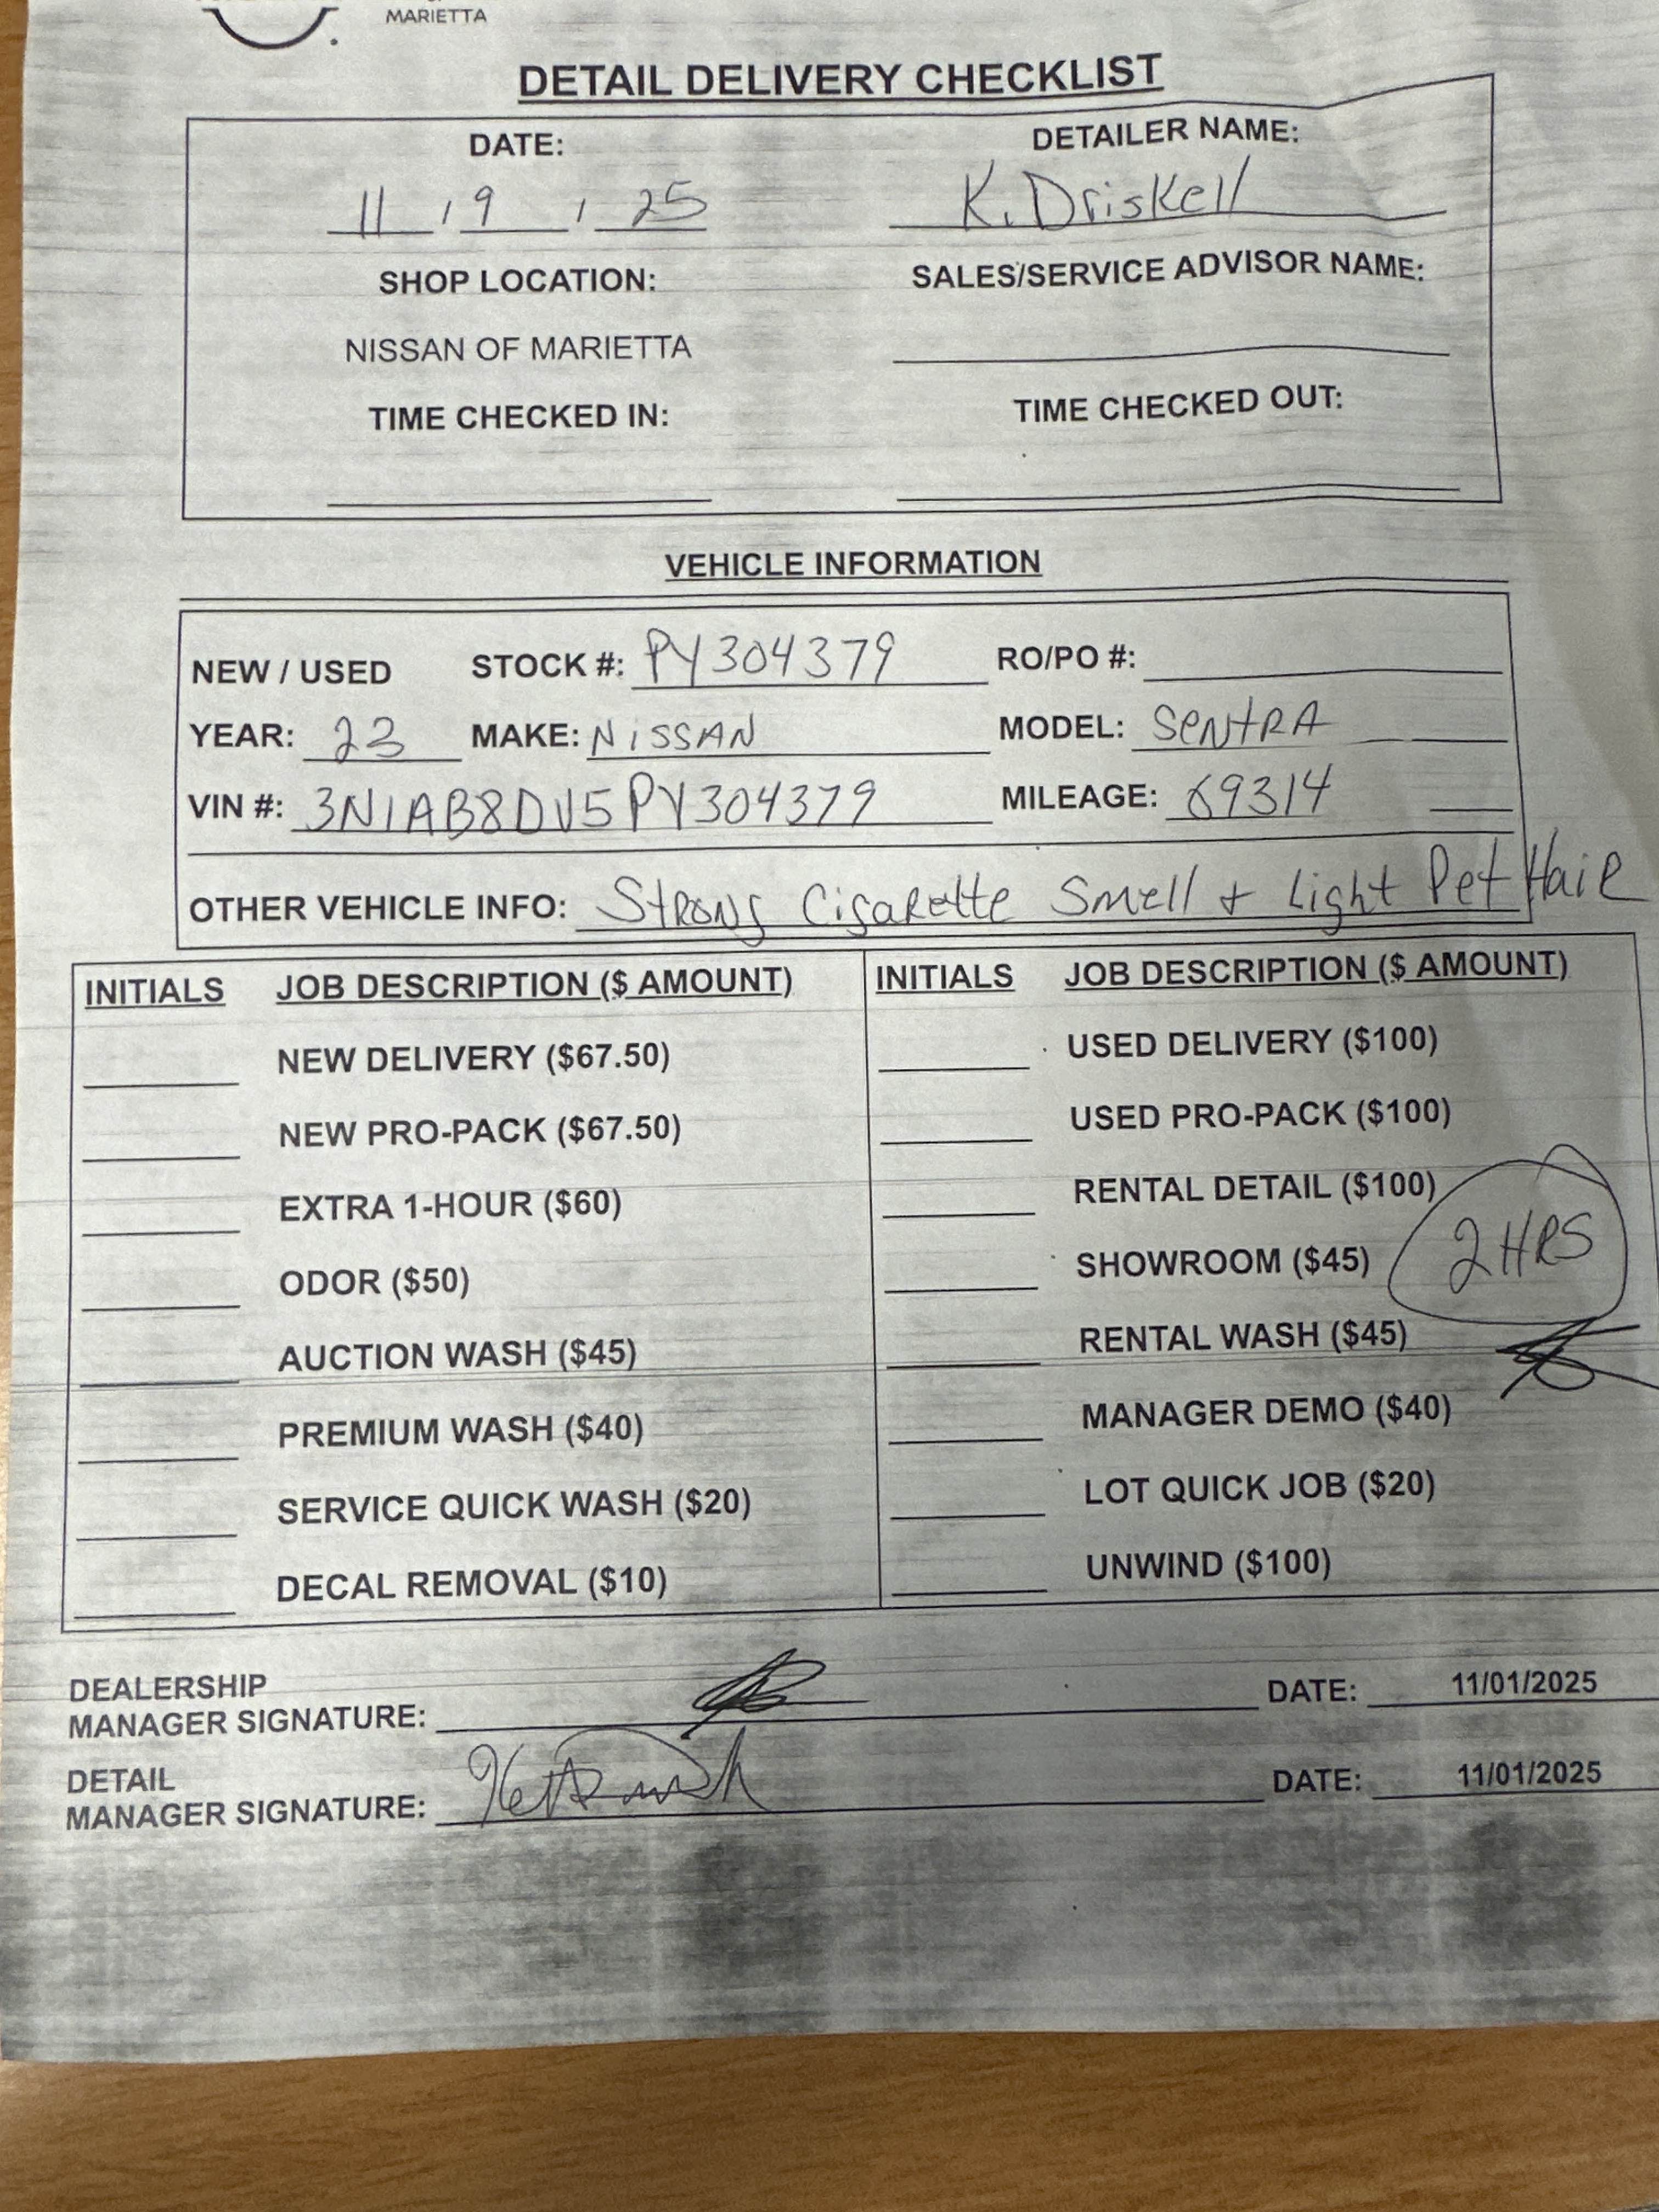 MARIETTA
DETAIL DELIVERY CHECKLIST
DATE: DETAILER NAME:
11 / 9 / 25 K. Driskell
SHOP LOCATION: SALES/SERVICE ADVISOR NAME:
NISSAN OF MARIETTA
TIME CHECKED IN: TIME CHECKED OUT:
VEHICLE INFORMATION
NEW / USED STOCK #: PY304379 RO/PO #:
YEAR: 23 MAKE: NiSSAN MODEL: SENtRA
VIN #: 3N1AB8DV5PY304379 MILEAGE: 69314
OTHER VEHICLE INFO: Strong Cigarette Smell + Light Pet Hair
INITIALS JOB DESCRIPTION ($ AMOUNT) INITIALS JOB DESCRIPTION ($ AMOUNT)
NEW DELIVERY ($67.50) USED DELIVERY ($100)
NEW PRO-PACK ($67.50) USED PRO-PACK ($100)
EXTRA 1-HOUR ($60) RENTAL DETAIL ($100)
ODOR ($50) SHOWROOM ($45) 2 HRS
AUCTION WASH ($45) RENTAL WASH ($45)
PREMIUM WASH ($40) MANAGER DEMO ($40)
SERVICE QUICK WASH ($20) LOT QUICK JOB ($20)
DECAL REMOVAL ($10) UNWIND ($100)
DEALERSHIP
MANAGER SIGNATURE: DATE: 11/01/2025
DETAIL
MANAGER SIGNATURE: DATE: 11/01/2025